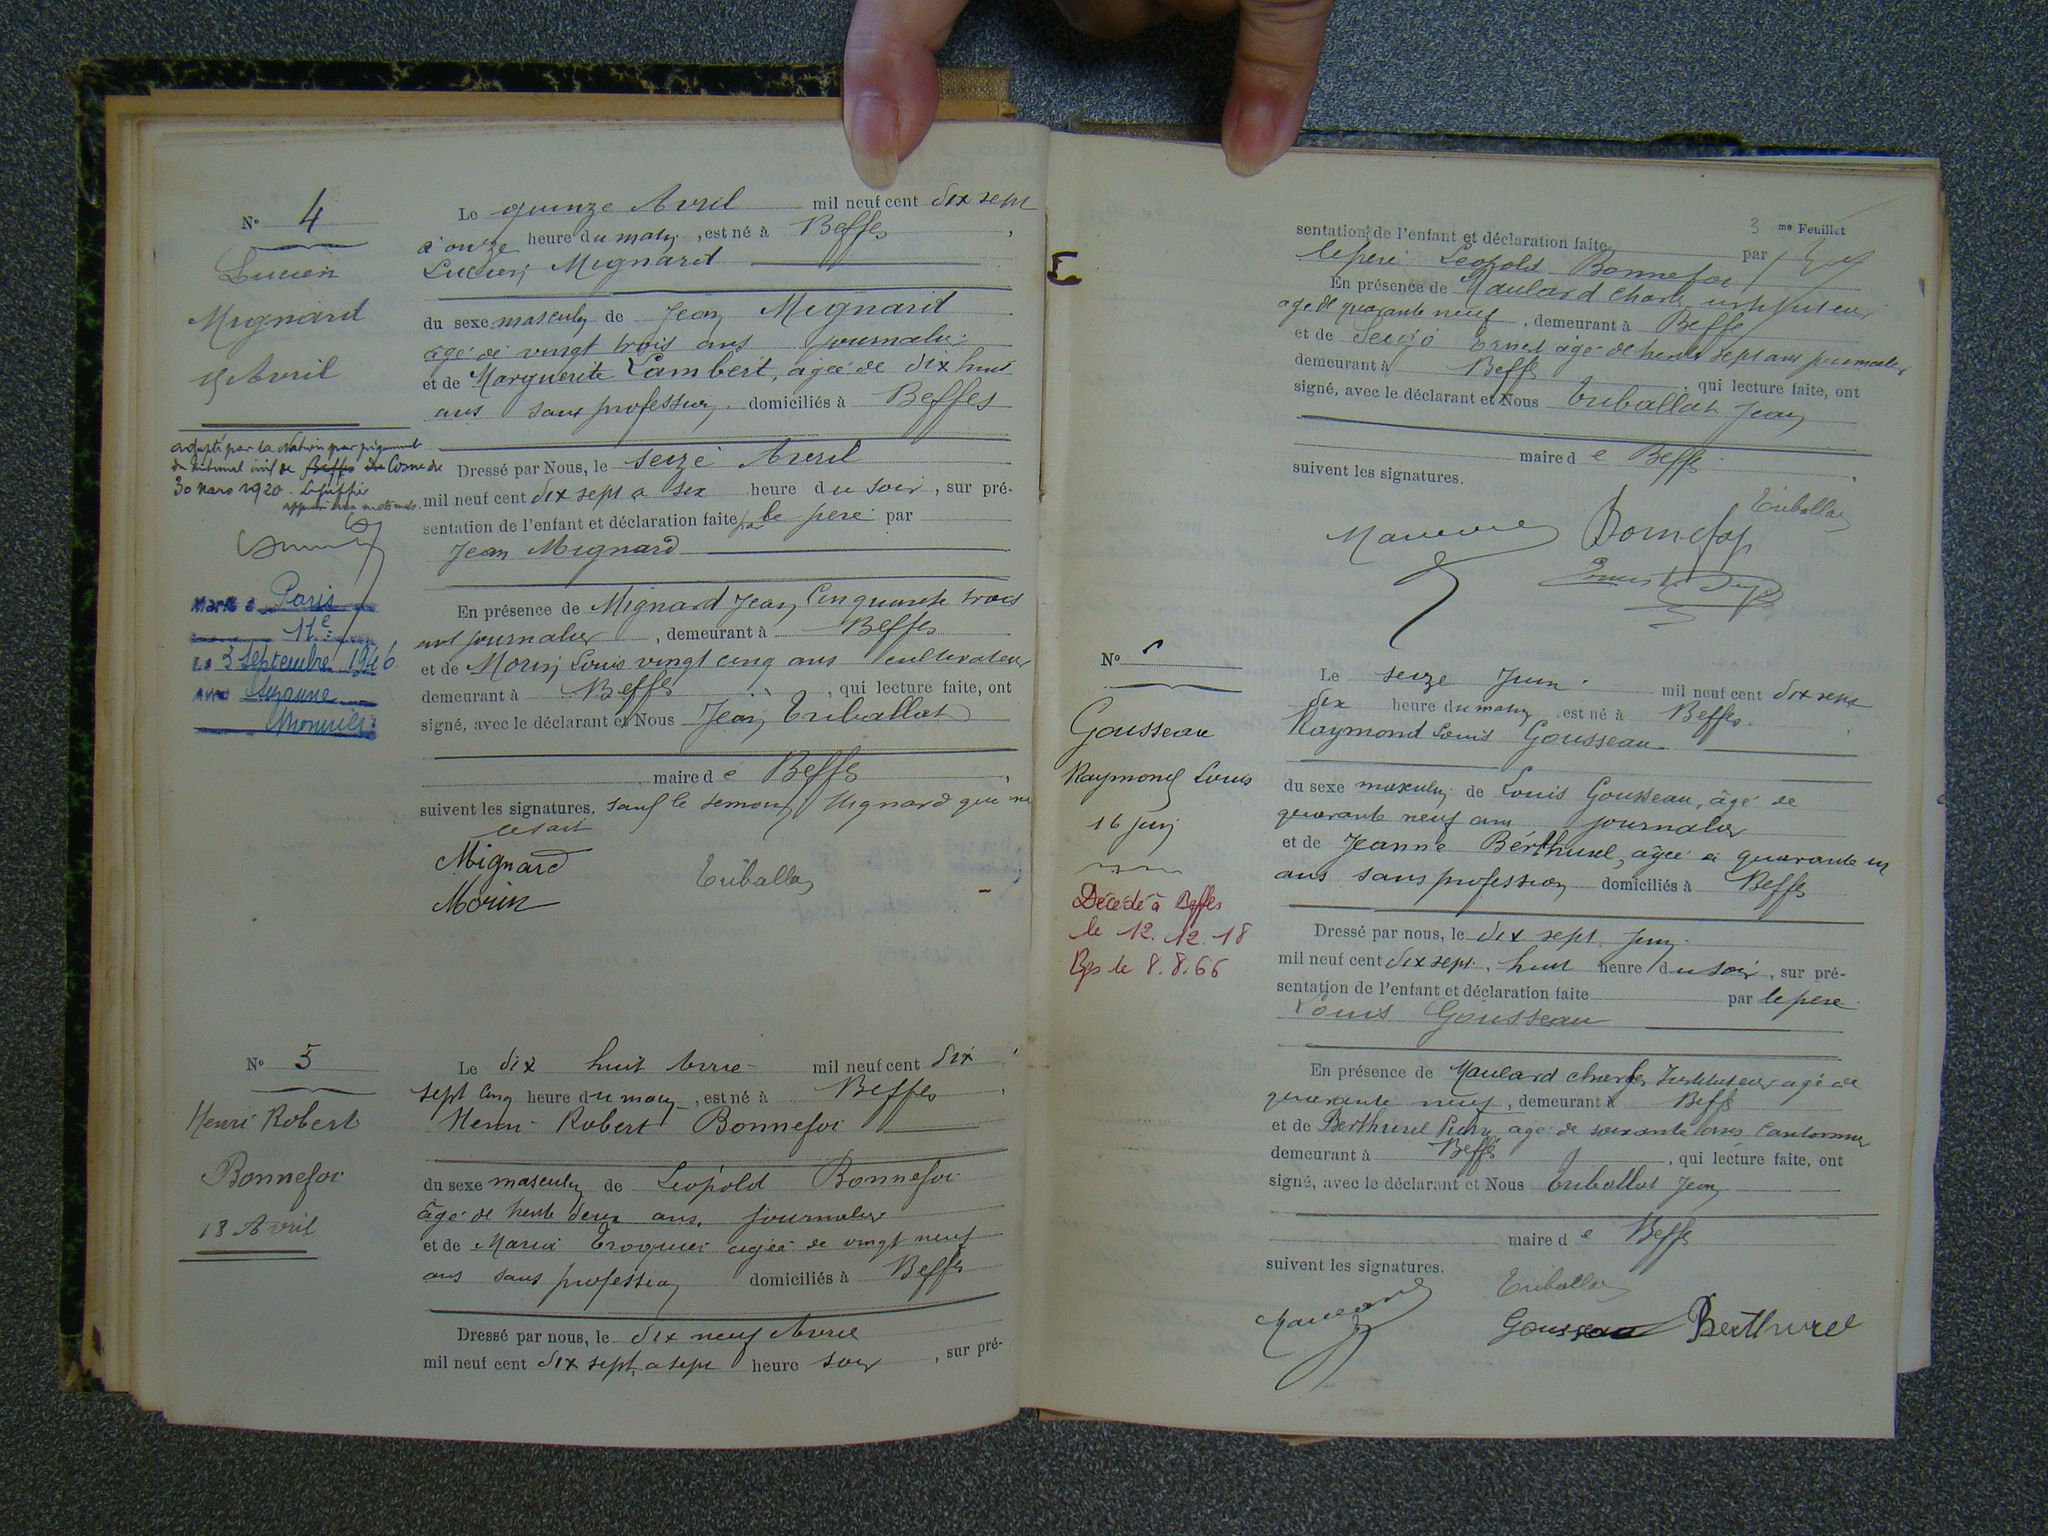 N° 4
Lucien
Mignard
15 Avril
adopté par la Nation par jugement
du tribunal civil de Beffes du Cosne du
30 Mars 1920.
Marié à Paris
11e
Le 3 Septembre 1946
Avec Suzanne
Le quinze Avril mil neuf cent dix sept
à onze heure du matin, est né à Beffes,
Lucien Mignard
du sexe masculin de Jean Mignard
âgé de vingt trois ans journalier
et de Marguerite Lambert, âgée de dix huit
ans sans profession domiciliés à Beffes
Dressé par Nous, le seize Avril
mil neuf cent dix sept à six heure du soir, sur pré-
sentation de l'enfant et déclaration faite par le père par
Jean Mignard
En présence de Mignard Jean Cinquante trois
ans journalier, demeurant à Beffes
et de Morin Louis vingt cinq ans cultivateur
demeurant à Beffes, qui lecture faite, ont
signé, avec le déclarant et Nous Jean Triballat
maire de Beffes,
suivent les signatures. sauf le témoin Mignard qui ne
Mignard
Triballat
Morin
N° 5
Henri Robert
Bonnefoi
18 Avril
Le dix huit Avril mil neuf cent dix
sept cinq heure du matin, est né à Beffes,
Henri Robert Bonnefoi
du sexe masculin de Léopold Bonnefoi
âgé de trente deux ans, journalier
et de Maria Troquier âgée de vingt neuf
ans sans profession domiciliés à Beffes
Dressé par nous, le dix neuf Avril
mil neuf cent dix sept, à sept heure soir, sur pré-
3 me Feuillet
sentation de l'enfant et déclaration faite par
le père Léopold Bonnefoi
En présence de Maulard Charles instituteur
âgé de quarante neuf, demeurant à Beffes
et de Ernest âgé de trente sept ans journalier
demeurant à Beffes, qui lecture faite, ont
signé, avec le déclarant et Nous Triballat Jean
maire de Beffes,
suivent les signatures.
Triballat
Bonnefoy
N°
Gousseau
Raymond Louis
16 juin
Décédé à Beffes
le 12.12.18
Bgs le 8.8.66
Le seize Juin mil neuf cent dix sept
dix heure du matin est né à Beffes.
Raymond Louis Gousseau
du sexe masculin de Louis Gousseau, âgé de
quarante neuf ans journalier
et de Jeanne Bérthurel, âgée de quarante un
ans sans profession domiciliés à Beffes
Dressé par nous, le dix sept Juin
mil neuf cent dix sept, huit heure du soir, sur pré-
sentation de l'enfant et déclaration faite par le père
Louis Gousseau
En présence de Maulard Charles Instituteur âgé de
quarante neuf, demeurant à Beffes
et de Berthurel âgé de soixante ans Cantonnier
demeurant à Beffes, qui lecture faite, ont
signé, avec le déclarant et Nous Triballat Jean
maire de Beffes
suivent les signatures.
Triballat
Gousseau Berthurel